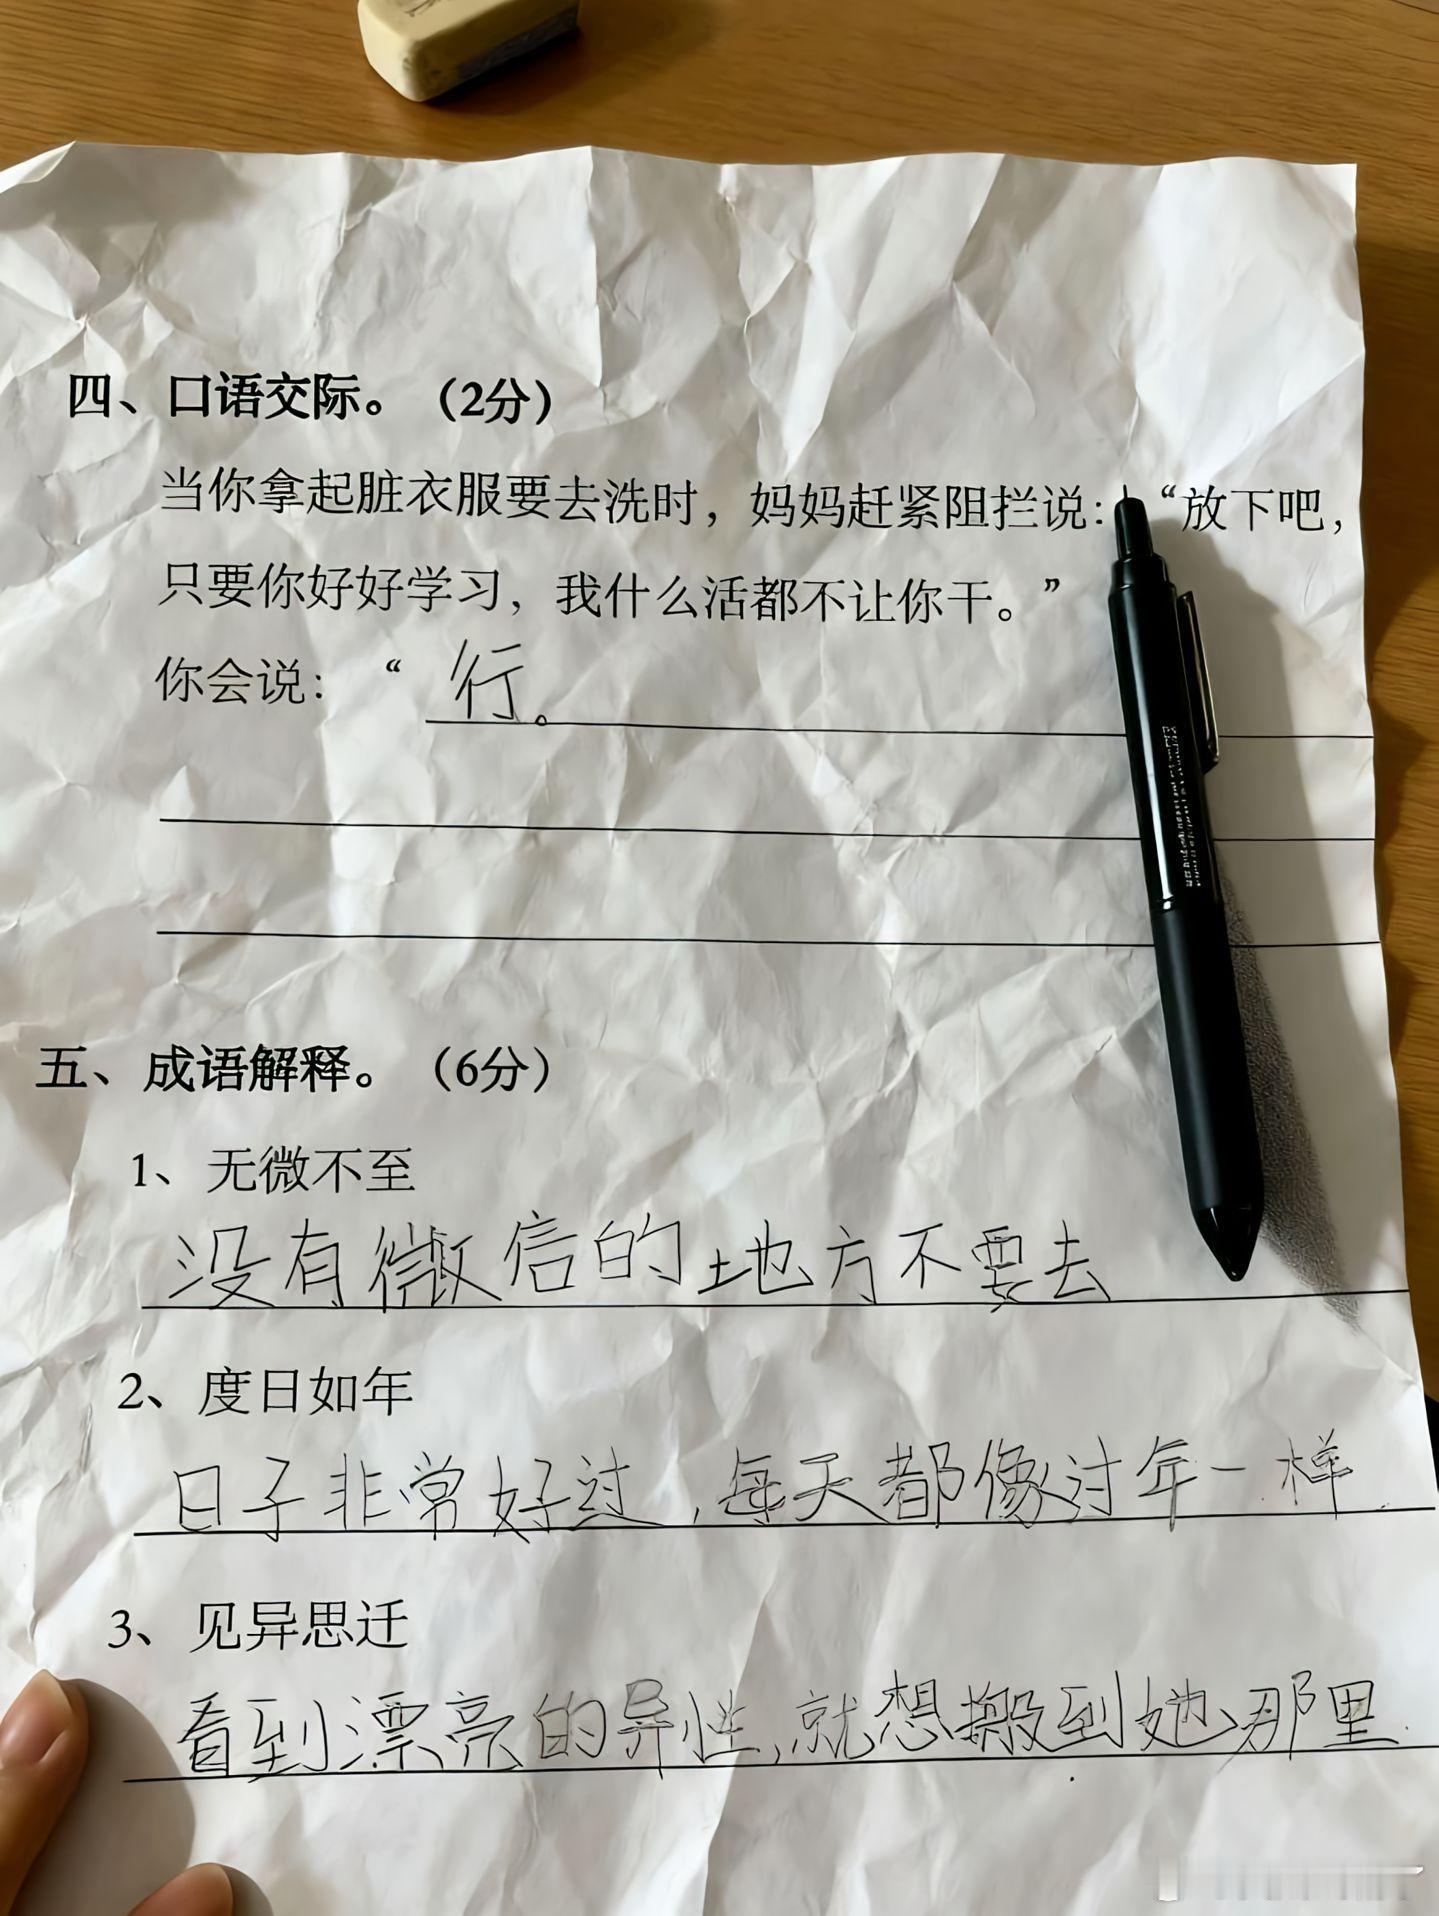 四、口语交际。（2分）
当你拿起脏衣服要去洗时，妈妈赶紧阻拦说：“放下吧，
只要你好好学习，我什么活都不让你干。”
你会说：“行。
五、成语解释。（6分）
1、无微不至
没有微信的地方不要去
2、度日如年
日子非常好过，每天都像过年一样.
3、见异思迁
看到漂亮的异性，就想搬到她那里.